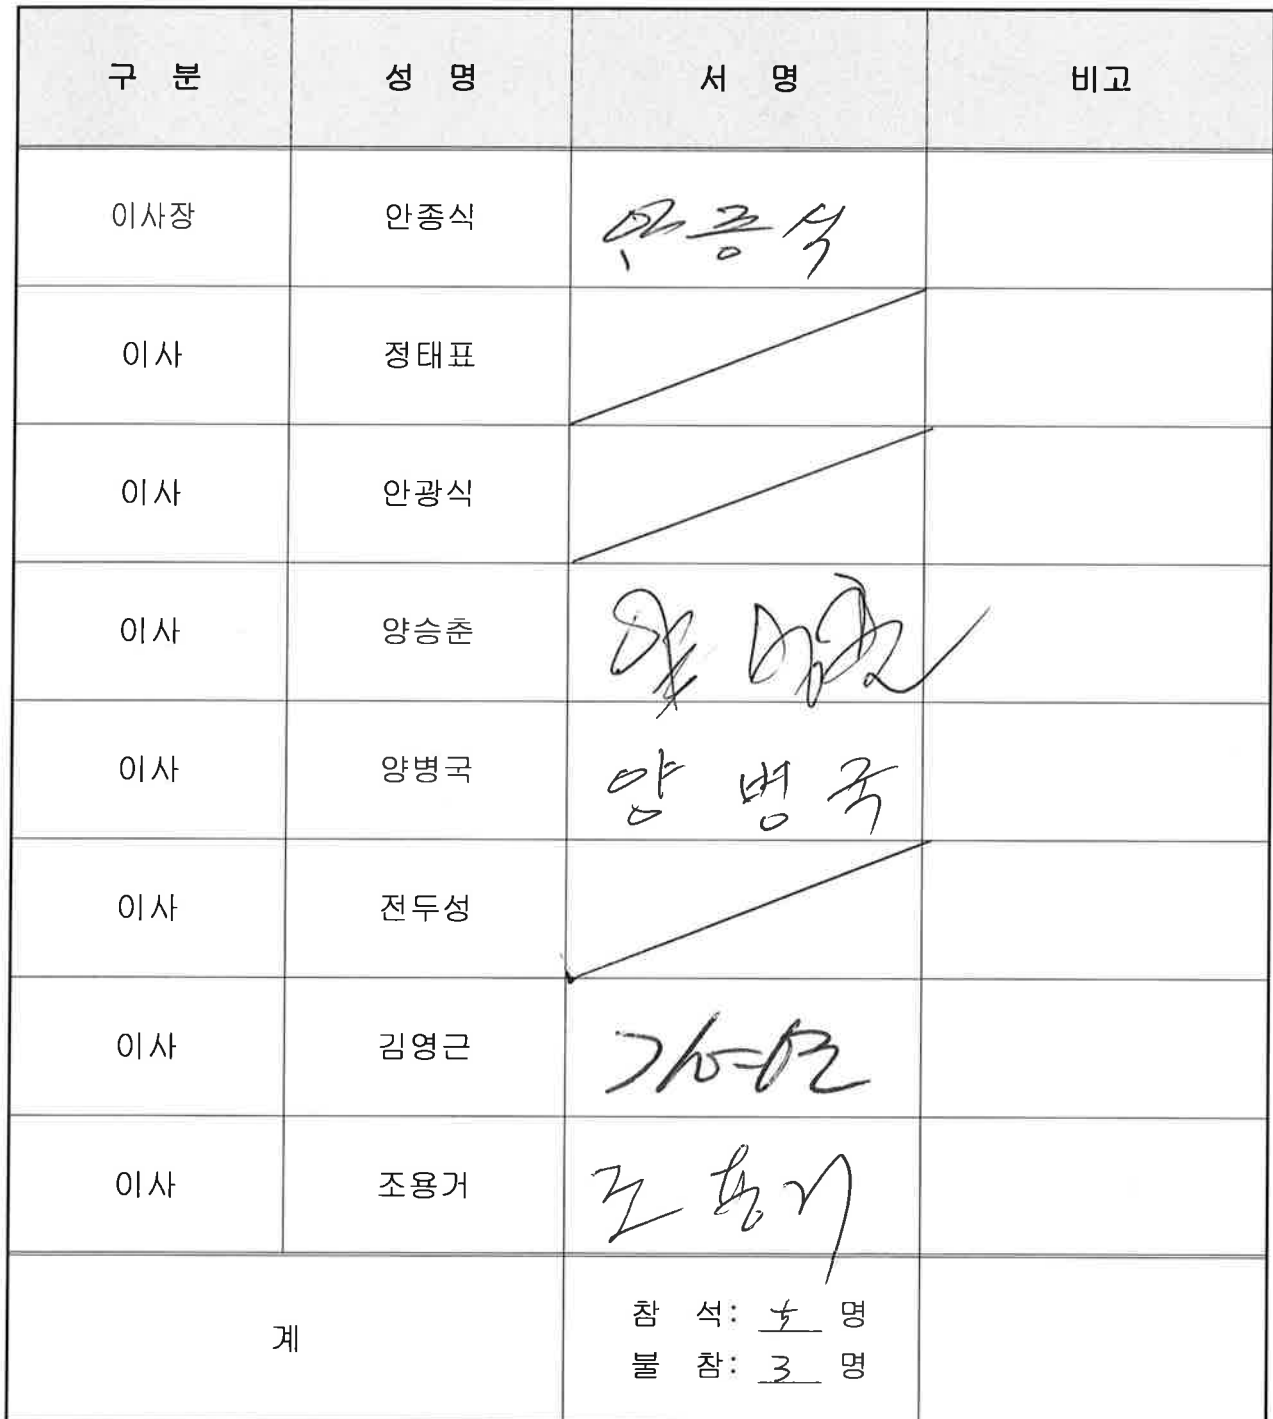 구 분 성 명 서 명 비고
이사장 안종식 안종식
이사 정태표
이사 안광식
이사 양승춘 양승춘
이사 양병국 양병국
이사 전두성
이사 김영근 김영근
이사 조용거 조용거
계
참 석: 5 명
불 참: 3 명